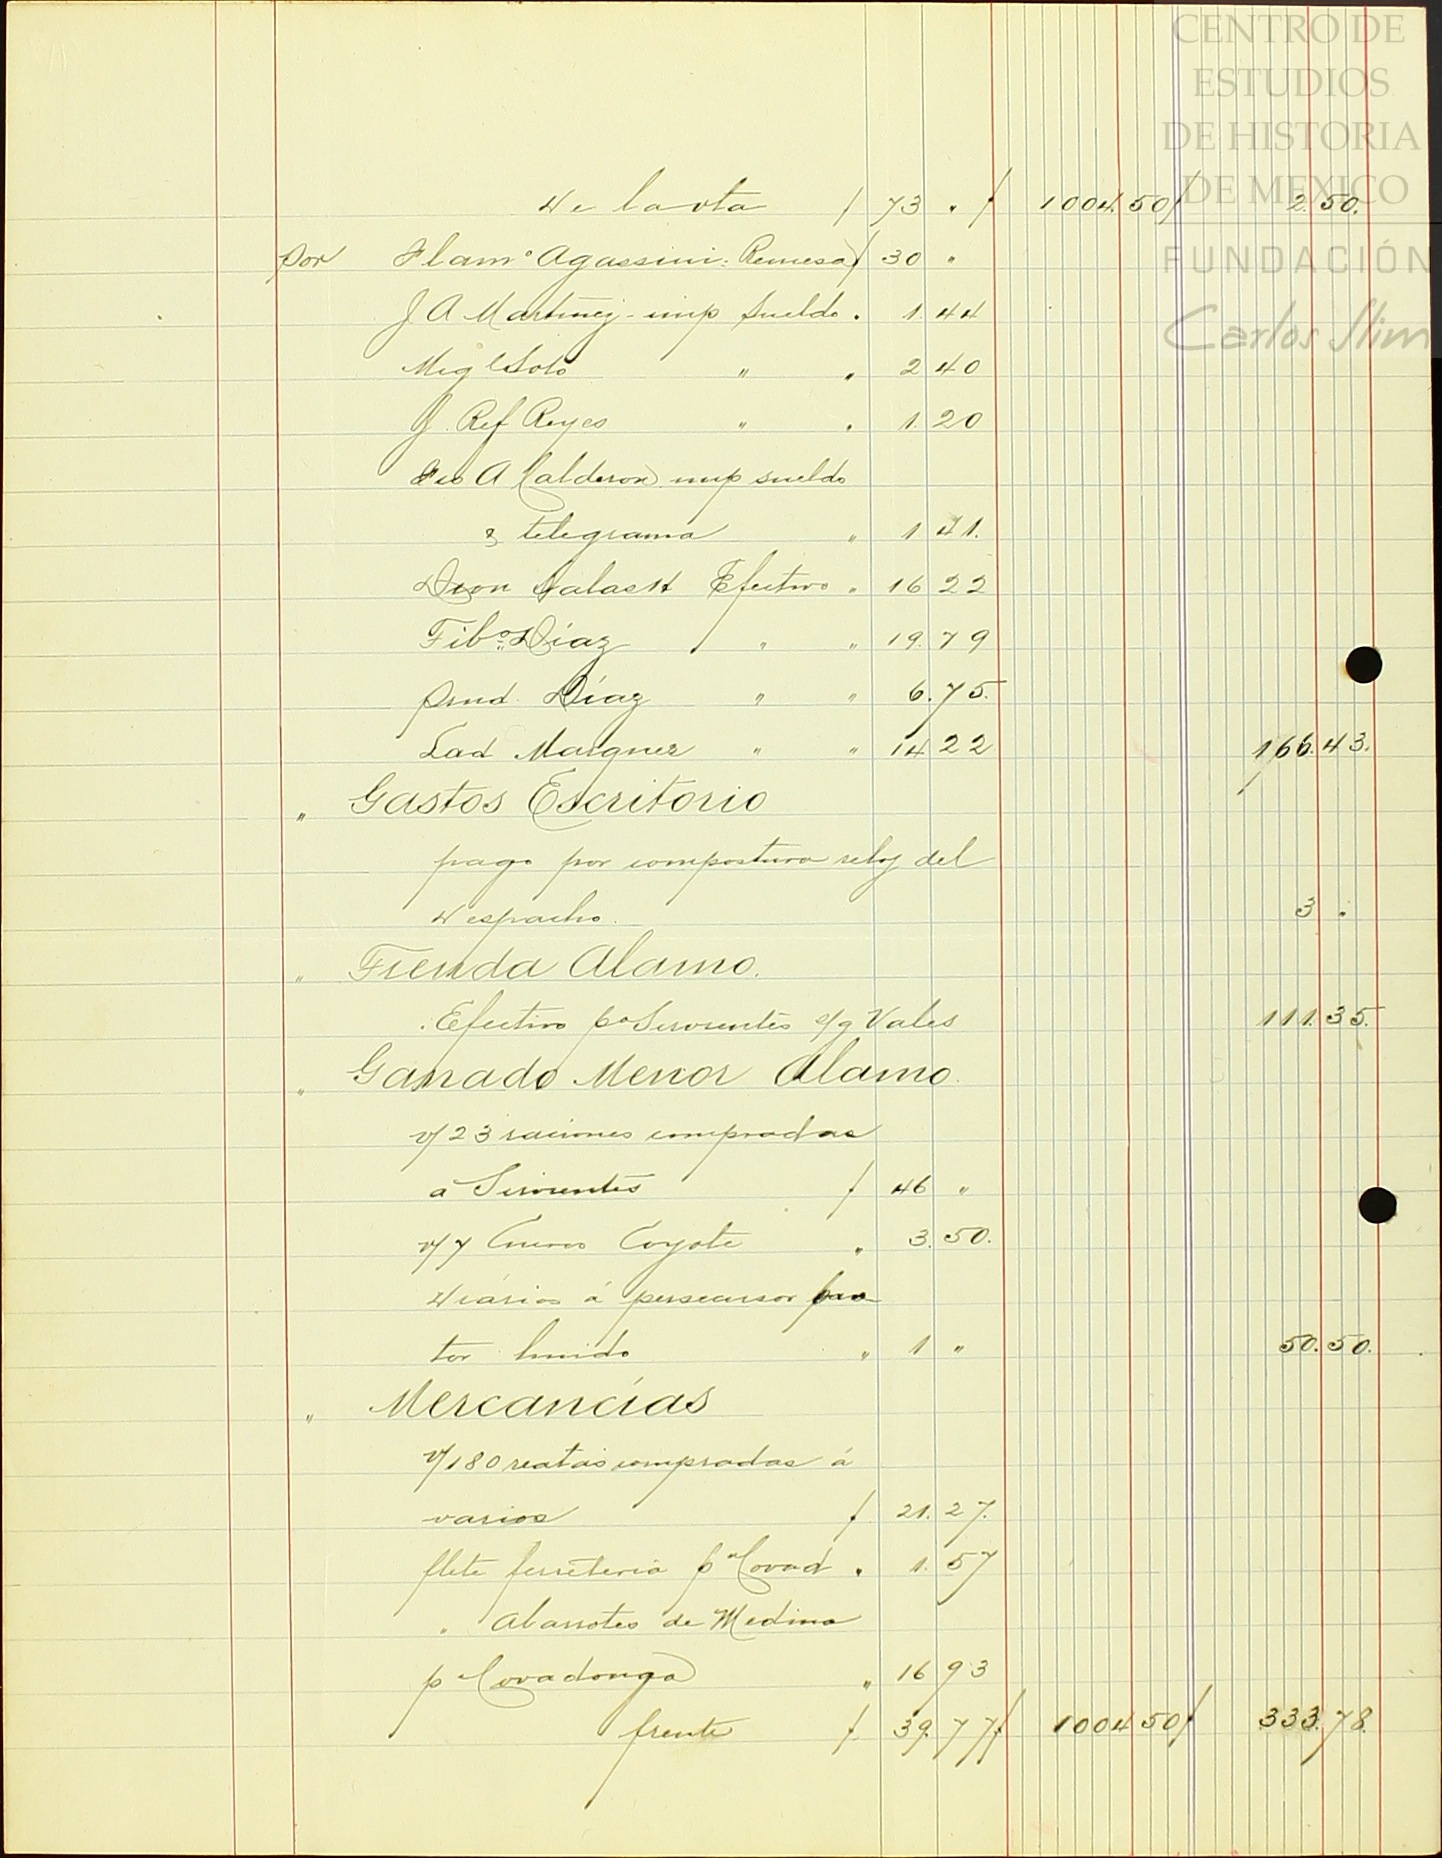 CENTRO DE
ESTUDIOS
DE HISTORIA
DE MEXICO
FUNDACIÓN
Carlos Slim
De la vta $ 73 " $ 1004.50 $ 2.50.
por Agassini. Remesa $ 30 "
J A Martinez - imp sueldo . 1.44
Migl Soto " " 2 40
J. Ref Reyes " . 1.20
A Calderon imp sueldo
& telegrama " 1 41.
Efectivo " 16 22
Tibo Diaz " " 19.79
Prud. Díaz " " 6.75.
Lad Marquez " " 14 22 166.43.
" Gastos Escritorio
pago por compostura reloj del
Despacho. 3 .
" Tienda Alamo.
. Efectivo pa Sirvientes s/g Vales 111.35.
" Ganado Menor Alamo.
v/ 23 raciones compradas
a Sirvientes $ 46 "
v/ 7 Cueros Coyote " 3.50.
Diarios á persecusor pas-
tor huido " 1 " 50.50.
" Mercancías
v/ 180 reatas compradas á
varios $ 21.27.
flete ferreteria pa Covad . 1.57
" Abarrotes de Medina
p Covadonga " 16 93
frente $ 39.77 $ 1004 50 $ 333.78.